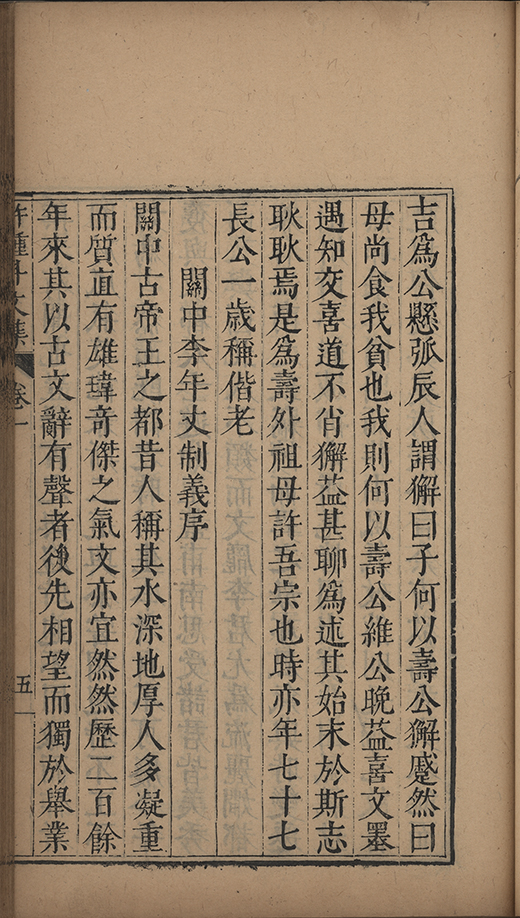 吉爲公懸弧辰人謂獬曰子何以壽公獬蹙然曰
母尚食我貧也我則何以壽公維公晚益喜文墨
遇知交喜道不肖獬益甚聊爲述其始末於斯志
耿耿焉是爲壽外祖母許吾宗也時亦年七十七
長公一歲稱偕老
關中李年丈制義序
關中古帝王之都昔人稱其水深地厚人多凝重
而質直有雄瑋奇傑之氣文亦宜然然歷二百餘
年來其以古文辭有聲者後先相望而獨於舉業
許鍾斗文集 卷一 五